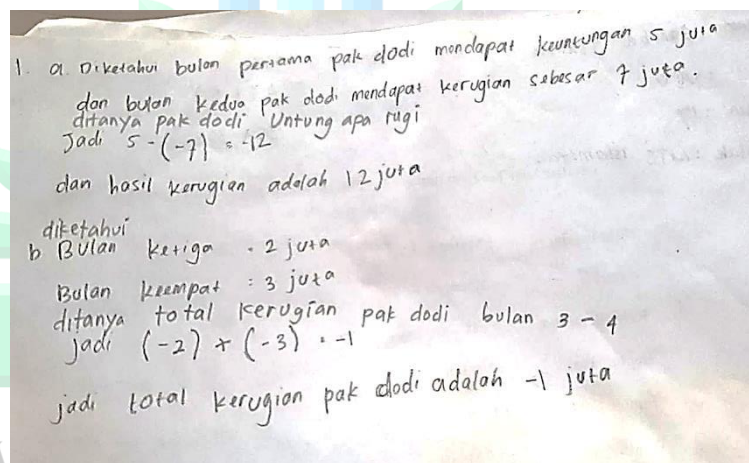 1. a. Diketahui bulan pertama pak dodi mendapat keuntungan 5 juta
dan bulan kedua pak dodi mendapat kerugian sebesar 7 juta.
ditanya pak dodi Untung apa rugi
Jadi 5-(-7) = -12
dan hasil kerugian adalah 12 juta
diketahui
b Bulan ketiga = 2 juta
Bulan keempat : 3 juta
ditanya total kerugian pak dodi bulan 3 - 4
jadi (-2) + (-3) = -1
jadi total kerugian pak dodi adalah -1 juta